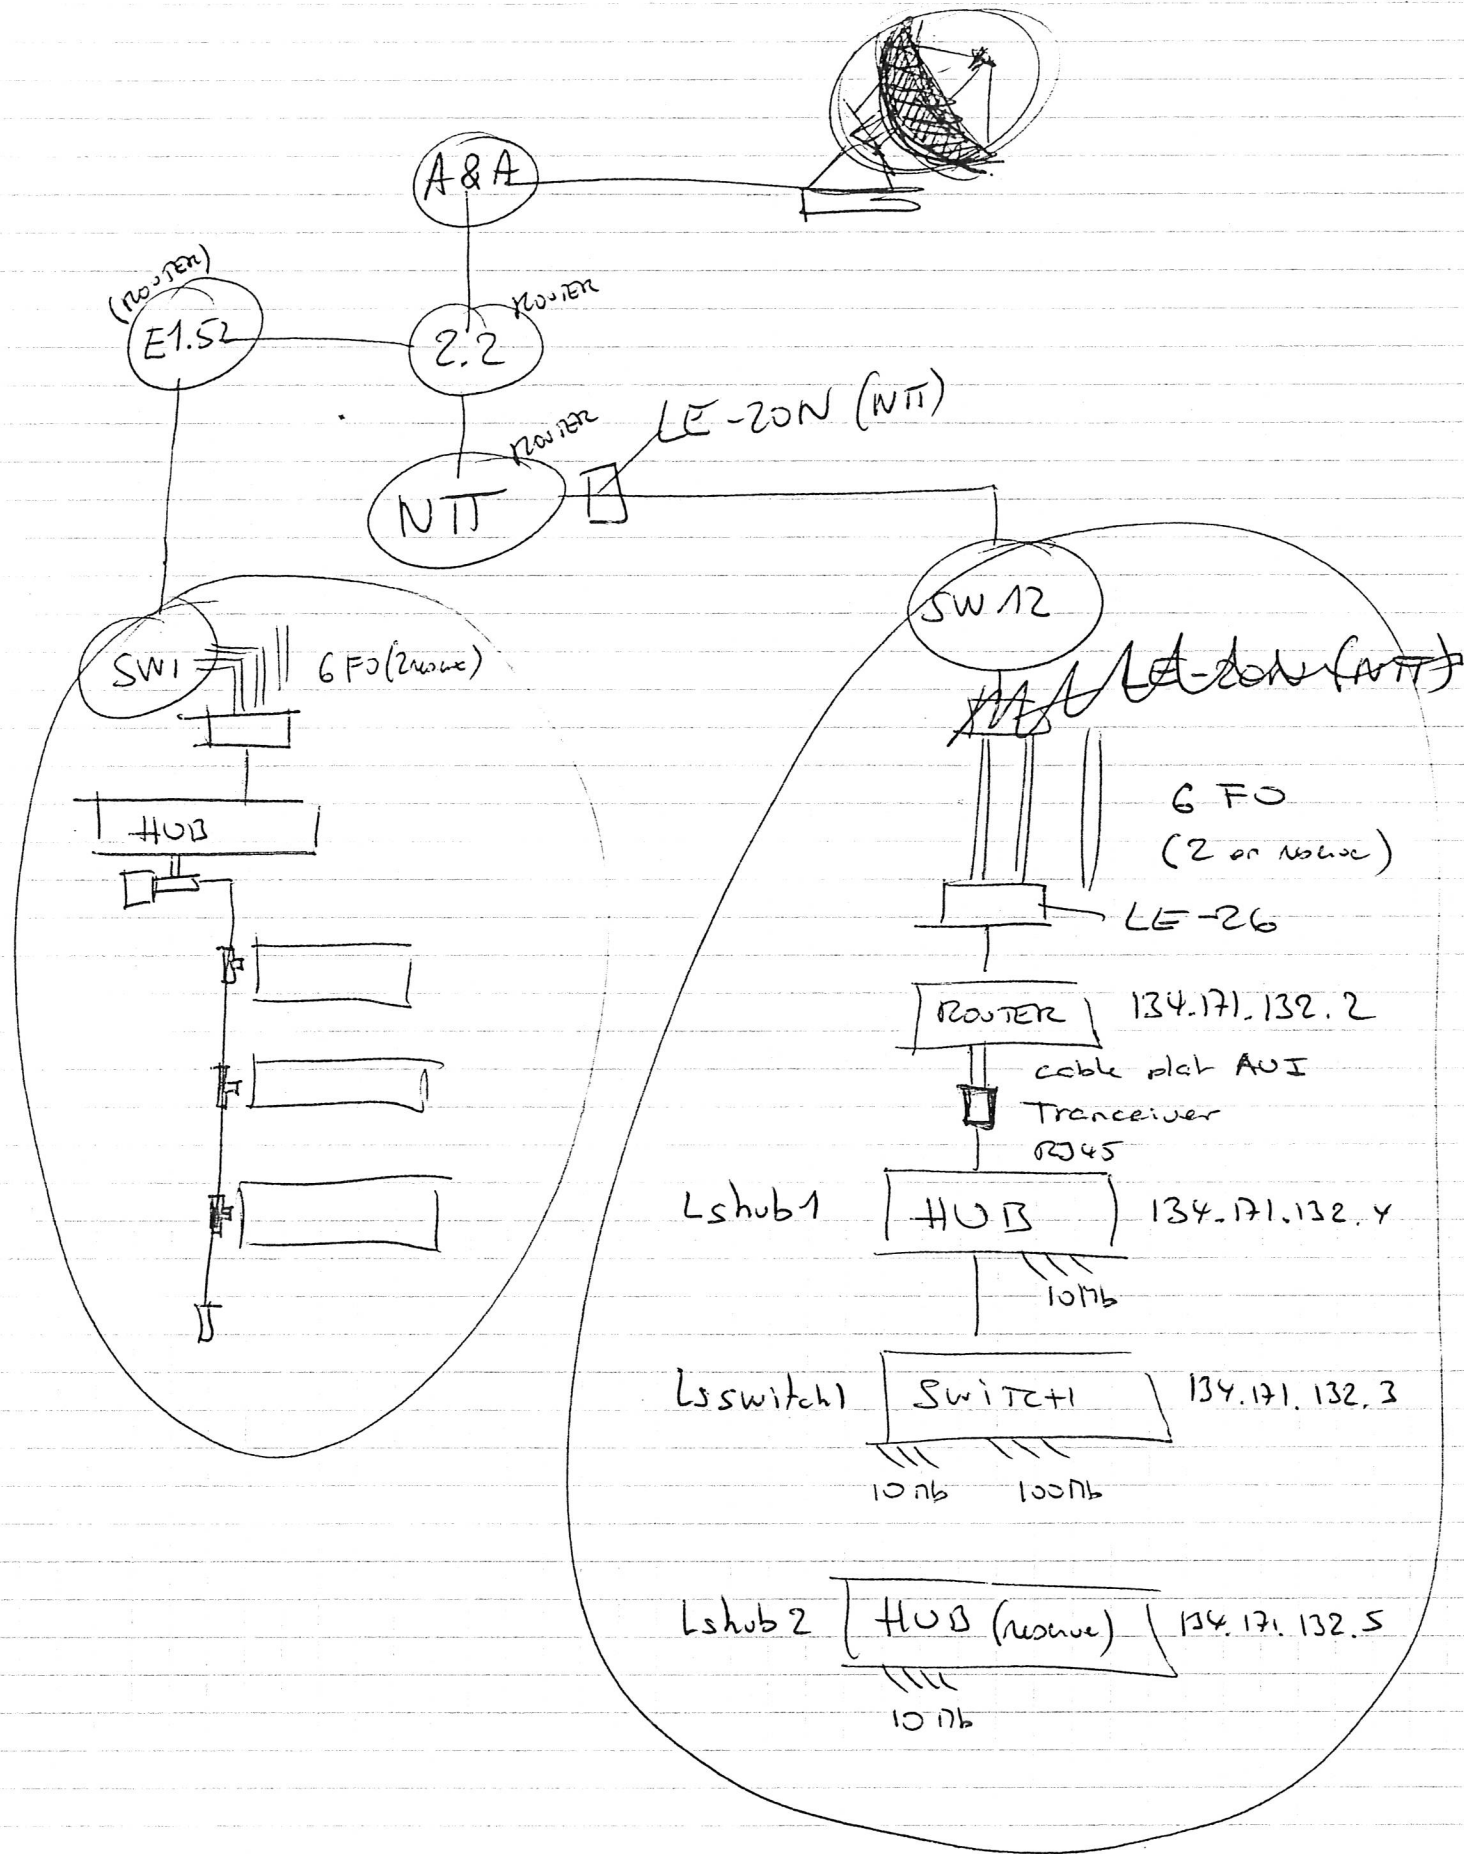 A & A
(ROUTER)
E1.52
ROUTER
2.2
ROUTER
LE-20N (NTT)
NTT
SW12
SW1
6 FO (2 reserve)
LE-20N (NTT)
6 FO
(2 en reserve)
HUB
LE-26
ROUTER
134.171.132.2
cable plat AUI
Tranceiver
RJ45
Lshub1
HUB
134.171.132.4
10Mb
Lsswitch1
SWITCH
134.171.132.3
10Mb
100Mb
Lshub2
HUB (reserve)
134.171.132.5
10Mb